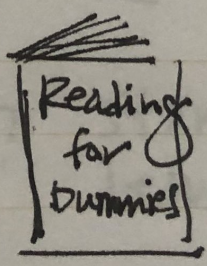 Reading
for
Dummies